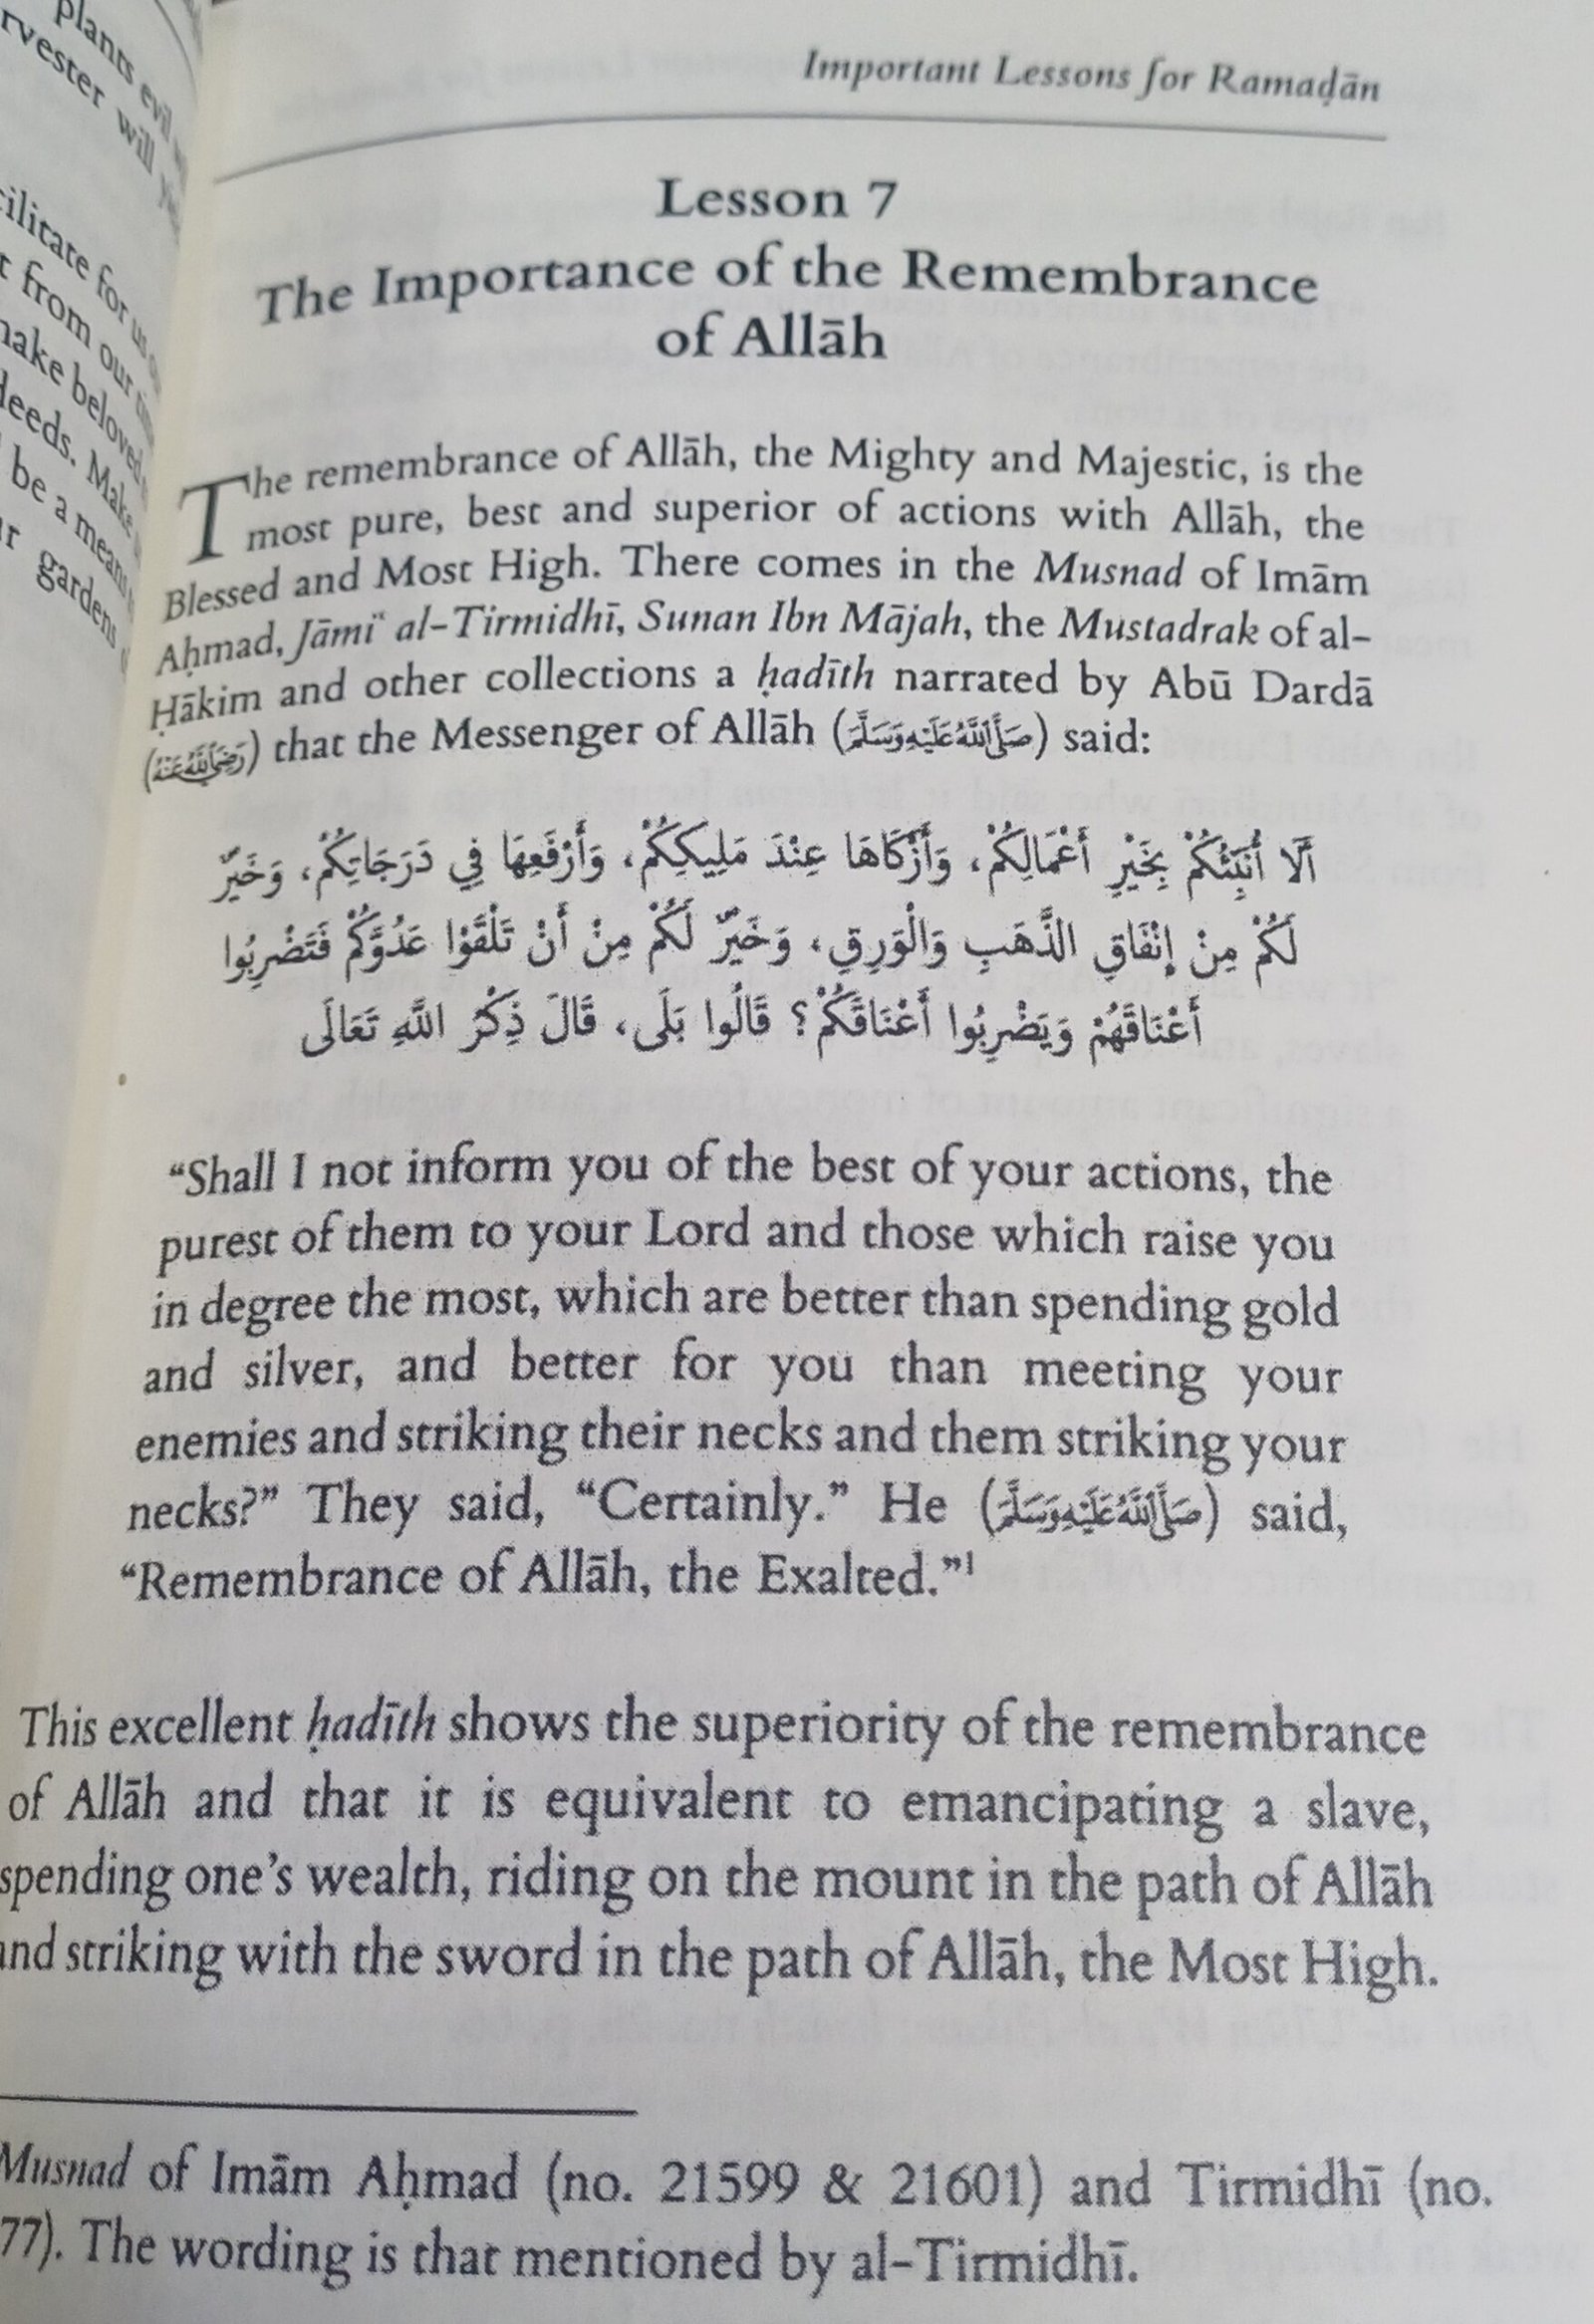 plants evil
rvester will
cilitate for us
t from our
make beloved
deeds. Make
be a means
r gardens
Important Lessons for Ramaḍān
Lesson 7
The Importance of the Remembrance
of Allāh
The remembrance of Allāh, the Mighty and Majestic, is the
most pure, best and superior of actions with Allāh, the
Blessed and Most High. There comes in the Musnad of Imām
Aḥmad, Jāmiʿ al-Tirmidhī, Sunan Ibn Mājah, the Mustadrak of al-
Ḥākim and other collections a ḥadīth narrated by Abū Dardā
(رَضِيَ اللَّهُ عَنْهُ) that the Messenger of Allāh (صَلَّى اللَّهُ عَلَيْهِ وَسَلَّمَ) said:
أَلَا أُنَبِّئُكُمْ بِخَيْرِ أَعْمَالِكُمْ، وَأَزْكَاهَا عِنْدَ مَلِيكِكُمْ، وَأَرْفَعِهَا فِي دَرَجَاتِكُمْ، وَخَيْرٌ
لَكُمْ مِنْ إِنْفَاقِ الذَّهَبِ وَالْوَرِقِ، وَخَيْرٌ لَكُمْ مِنْ أَنْ تَلْقَوْا عَدُوَّكُمْ فَتَضْرِبُوا
أَعْنَاقَهُمْ وَيَضْرِبُوا أَعْنَاقَكُمْ؟ قَالُوا بَلَى، قَالَ ذِكْرُ اللَّهِ تَعَالَى
“Shall I not inform you of the best of your actions, the
purest of them to your Lord and those which raise you
in degree the most, which are better than spending gold
and silver, and better for you than meeting your
enemies and striking their necks and them striking your
necks?” They said, “Certainly.” He (صَلَّى اللَّهُ عَلَيْهِ وَسَلَّمَ) said,
“Remembrance of Allāh, the Exalted.”¹
This excellent ḥadīth shows the superiority of the remembrance
of Allāh and that it is equivalent to emancipating a slave,
spending one’s wealth, riding on the mount in the path of Allāh
and striking with the sword in the path of Allāh, the Most High.
Musnad of Imām Aḥmad (no. 21599 & 21601) and Tirmidhī (no.
77). The wording is that mentioned by al-Tirmidhī.